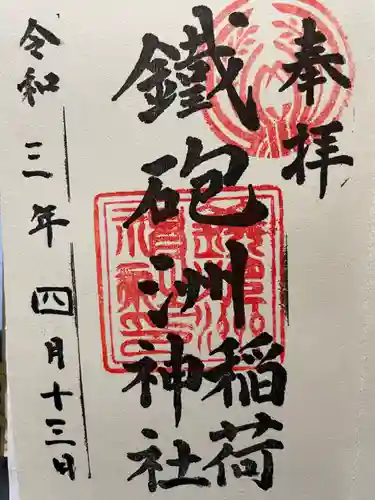 奉拝
鐵砲洲稲荷
神社
令和三年四月十三日